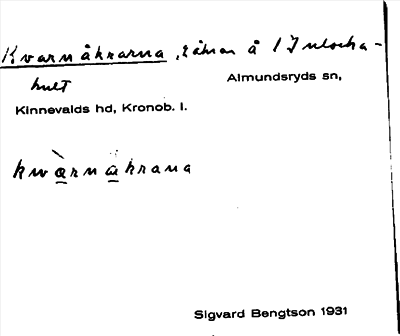 Kvarnåkrarna, åkrar å 1 J
hult
Almundsryds sn,
Kinnevalds hd, Kronob. l.
kwàrnäkrana
Sigvard Bengtson 1931